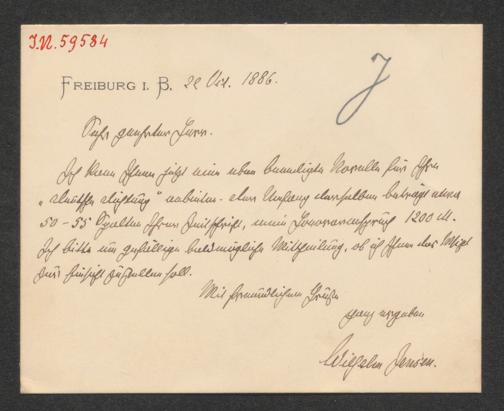 I.N. 59584
J
FREIBURG I. B. 22 Oct. 1886.
Sehr geehrter Herr.
Ich kann Ihnen jetzt eine eben beendigte Novelle für Ihre
„Deutsche Dichtung“ anbieten. Der Umfang derselben beträgt etwa
50–55 Spalten Ihrer Zeitschrift, mein Honoraranspruch 1200 M.
Ich bitte um gefällige baldmögliche Mittheilung, ob ich Ihnen das Mspt
zur Einsicht zustellen soll.
Mit freundlichem Gruße
ganz ergeben
Wilhelm Jensen.